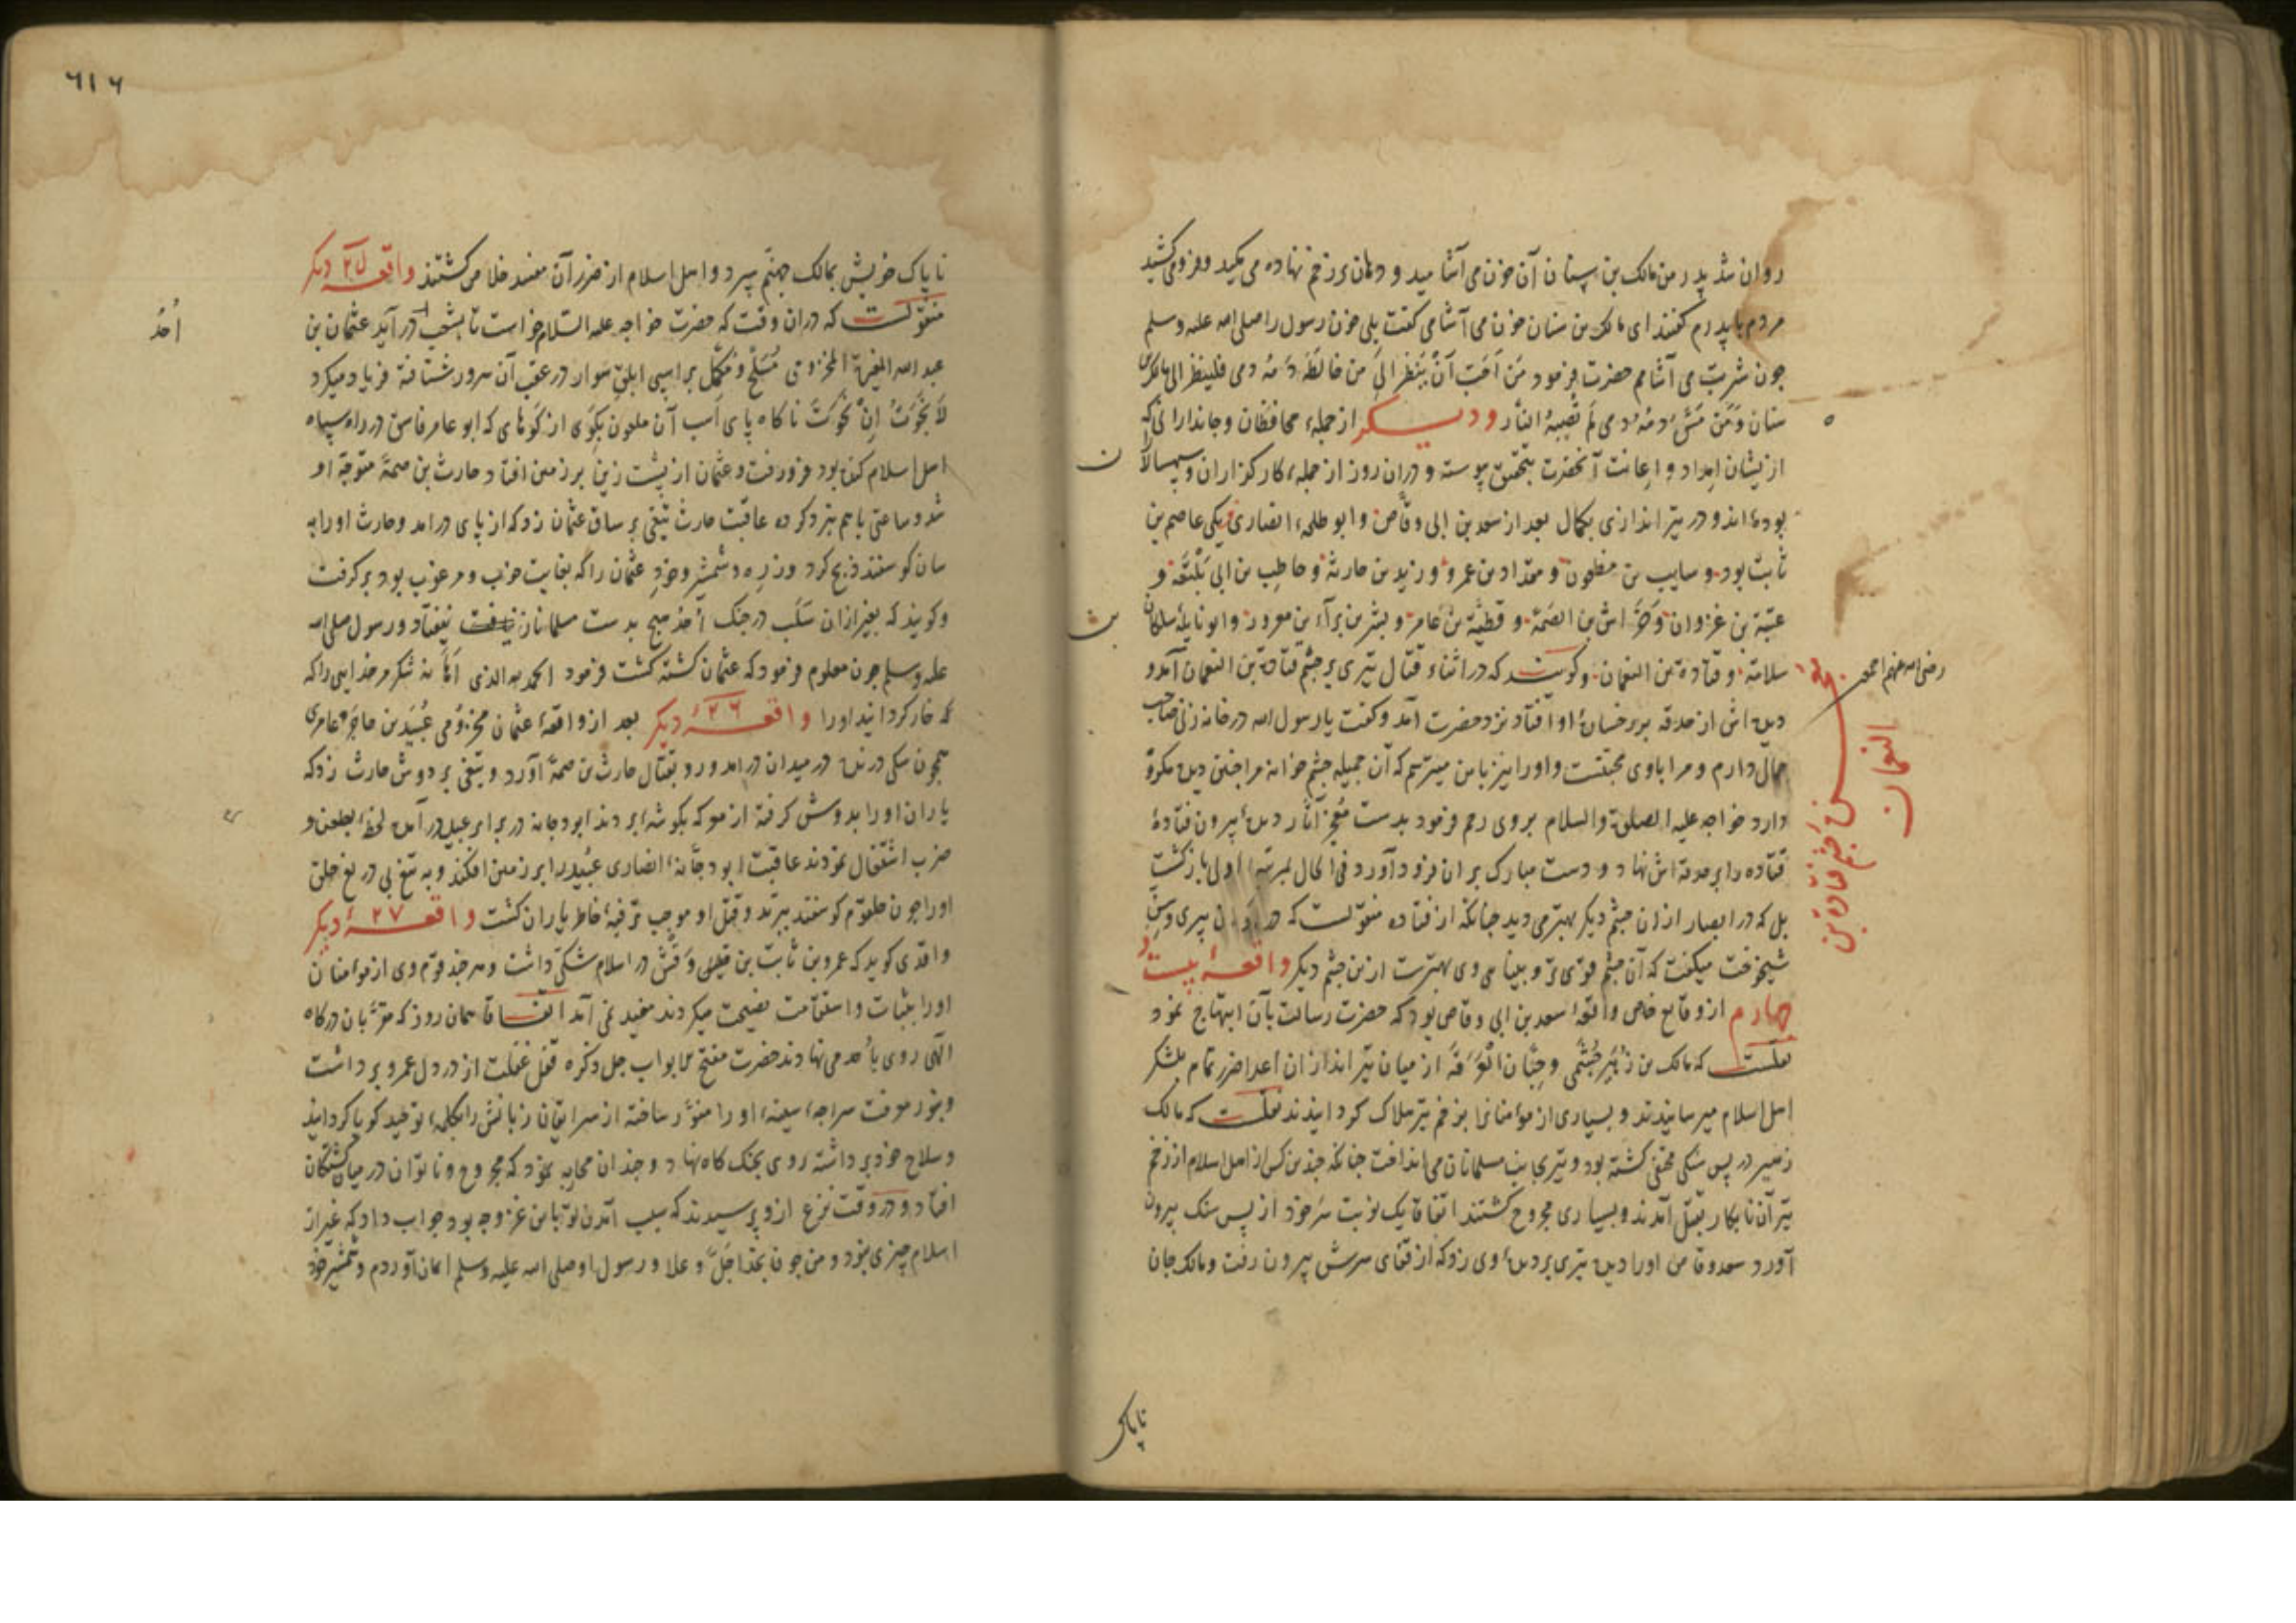 روان شد پدر من مالک بن سنان آن خون می آشامید و دهان بر زخم نهاده می مکید و فرو می کشید
مردم با پدرم گفتند ای مالک بن سنان خون می آشامی گفت بلی خون رسول را صلی الله علیه وسلم
چون شربت می آشامم حضرت فرمود مَن اَحَبّ اَنْ یَنظر اِلیَ من خالَطَ دَمُه دمی فلینظر الی مالک بن
سنان وَمَن مَسَّ دمُه دمی لَم تُصِبهُ النّار ودیـکر از جملهٔ محافظان و جاندارانی که
ازیشان امداد و اعانت آنحضرت بتحقیق پیوسته و دران روز از جملهٔ کارکزاران و سپهسالاران
بوده‌اند و در تیر اندازی بکمال بعد از سعد بن ابی وقّاص و ابو طلحهٔ انصاری یکی عاصم بن
ثابت بود و سایب بن مظعون و مقداد بن عمرو و زید بن حارثة و حاطب بن ابی بَلْتَعَة و
عتبة بن غزوان و خِرَاش بن الصّمَّة و قطبة بن عامر و بشر بن برآء بن معرور و ابو نایلهٔ سلکان بن
سلامة و قتادة بن النعمان رضی الله عنهم اجمعین وکویـند که در اثناء قتال تیری بر چشم قتادة بن النعمان آمد و
زخم چشم قتادة بن النعمان
دیده اش از حدقه بر رخسارهٔ او افتاد نزد حضرت آمد و گفت یا رسول الله در خانه زنی صاحب
جمال دارم و مرا با وی محبتست و او را نیز با من میترسم که آن جمیله چشم خوانه مرا چنین دیده مکروه
دارد خواجه علیه الصلوة والسلام بر وی رحم فرمود بدست مُعجز آثار دیدهٔ بیرون فتادهٔ
قتاده را بر حدقه اش نهاد و دست مبارک بر ان فرود آورد فی الحال بمرتبهٔ اولی باز کشت
بل که در ابصار از ان چشم دیکر بهتر می دید چنانکه از قتاده منقولست که در اوان پیری و سِنّ
شیخوخت میکفت که آن چشم قوی تر و بینایی وی بهترست ازین چشم دیکر واقعـهٔ بیست و
چهارم از وقایع خاص واقعهٔ سعد بن ابی وقاص بود که حضرت رسالت بآن ابتهاج نمود
نقلست که مالک بن زُهَیر جُشَمی و حِبّان بن الْعَرَقَة از میان تیر اندازان اعدا ضرر تمام بلشکر
اهل اسلام میرسانیدند و بسیاری از مؤمنانرا بزخم تیر هلاک کردانیدند نقلست که مالک
زهیر در پس سنکی مختفی کشته بود و تیر بجانب مسلمانان می انداخت چنانکه چندین کس از اهل اسلام از زخم
تیر آن نابکار بقتل آمدند و بسیاری مجروح کشتند اتفاقا یک نوبت سَر خود از پس سنک بیرون
آورد سعد وقاص او را دیده تیری بر دیدهٔ وی زد که از قفای سرش بیرون رفت و مالک جان
ناپاک
٦١٦
ناپاک خویش بمالک جهنّم سپرد و اهل اسلام از ضرر آن مفسد خلاص کشتند واقعـهٔ ۲۵ دیکر
منقولست که دران وقت که حضرت خواجه علیه السّلام خواست تا بشعب در آید عثمان بن
اُحُد
عبد الله المغیرة المخزومی مُسَلّح و مُکمّل بر اسپی ابلق سوار در عقب آن سرور شتافته فریاد میکرد
لَا نَجَوْتُ اِنْ نَجَوْتَ ناکاه پای اسب آن ملعون بکَوی از کَوهای که ابو عامر فاسق در راه سپاه
اهل اسلام کنده بود فرو رفت و عثمان از پشت زین بر زمین افتاد حارث بن صمّة متوجّه او
شد و ساعتی با هم نبرد کرده عاقبت حارث تیغی بر ساق عثمان زد که از پای درامد و حارث او را به
سان کوسفند ذبح کرد و زره و شمشیر و خودِ عثمان را که بغایت خوب و مرغوب بود بر گرفت
وکویند که بغیر ازان سَلَب در جنک اُحُد هیچ بدست مسلمانان نیفتاد و رسول صلی الله
علیه وسلم چون معلوم فرمود که عثمان کشته کشت فرمود الحمد لله الذی اَحَانَه شکر مر خدایی را که
که خار کردانید او را واقعـهٔ ۲٦ دیکر بعد از واقعهٔ عثمان مخزومی عُبَید بن حاجز عامری
همچون سکی درنده در میدان درامد و رو بقتال حارث بن صمّة آورد و تیغی بر دوش حارث زد که
یاران او را بدوش کرفته از معرکه بکوشهٔ بردند ابو دجانه در برابر عبید در آمد لحظهٔ بطعن و
ضرب اشتغال نمودند عاقبت ابو دجانهٔ انصاری عُبَید را بر زمین افکند و به تیغ بی دریغ حلق
او را چون حلقوم کوسفند ببرید و قتل او موجب ترفیهٔ خاطر یاران کشت واقعـهٔ ۲۷ دیکر
واقدی کوید که عمرو بن ثابت بن قیس وَقْش در اسلام شکی داشت و هر چند قوم وی از مؤمنان
او را بثبات و استقامت نصیحت میکردند مفید نمی آمد اتفـاقا همان روز که مقرّبان درکاه
الهی روی باُحد می نهادند حضرت مفتّح الابواب جل ذکره قفل غفلت از در دل عمرو برداشت
و بنور معرفت سراچهٔ سینهٔ او را منوّر ساخته از سر ایقان زبانش را بکلمهٔ توحید کویا کردانید
و سلاح خود برداشته روی بجنک کاه نهاد و چندان محاربه نمود که مجروح و ناتوان در میان کشتکان
افتاد و در وقت نزع ازو پرسیدند که سبب آمدن تو باین غزوه چه بود جواب داد که غیر از
اسلام چیزی نبود و من چون بخدا جَلّ و علا و رسول او صلی الله علیه وسلم ایمان آوردم و شمشیر خود